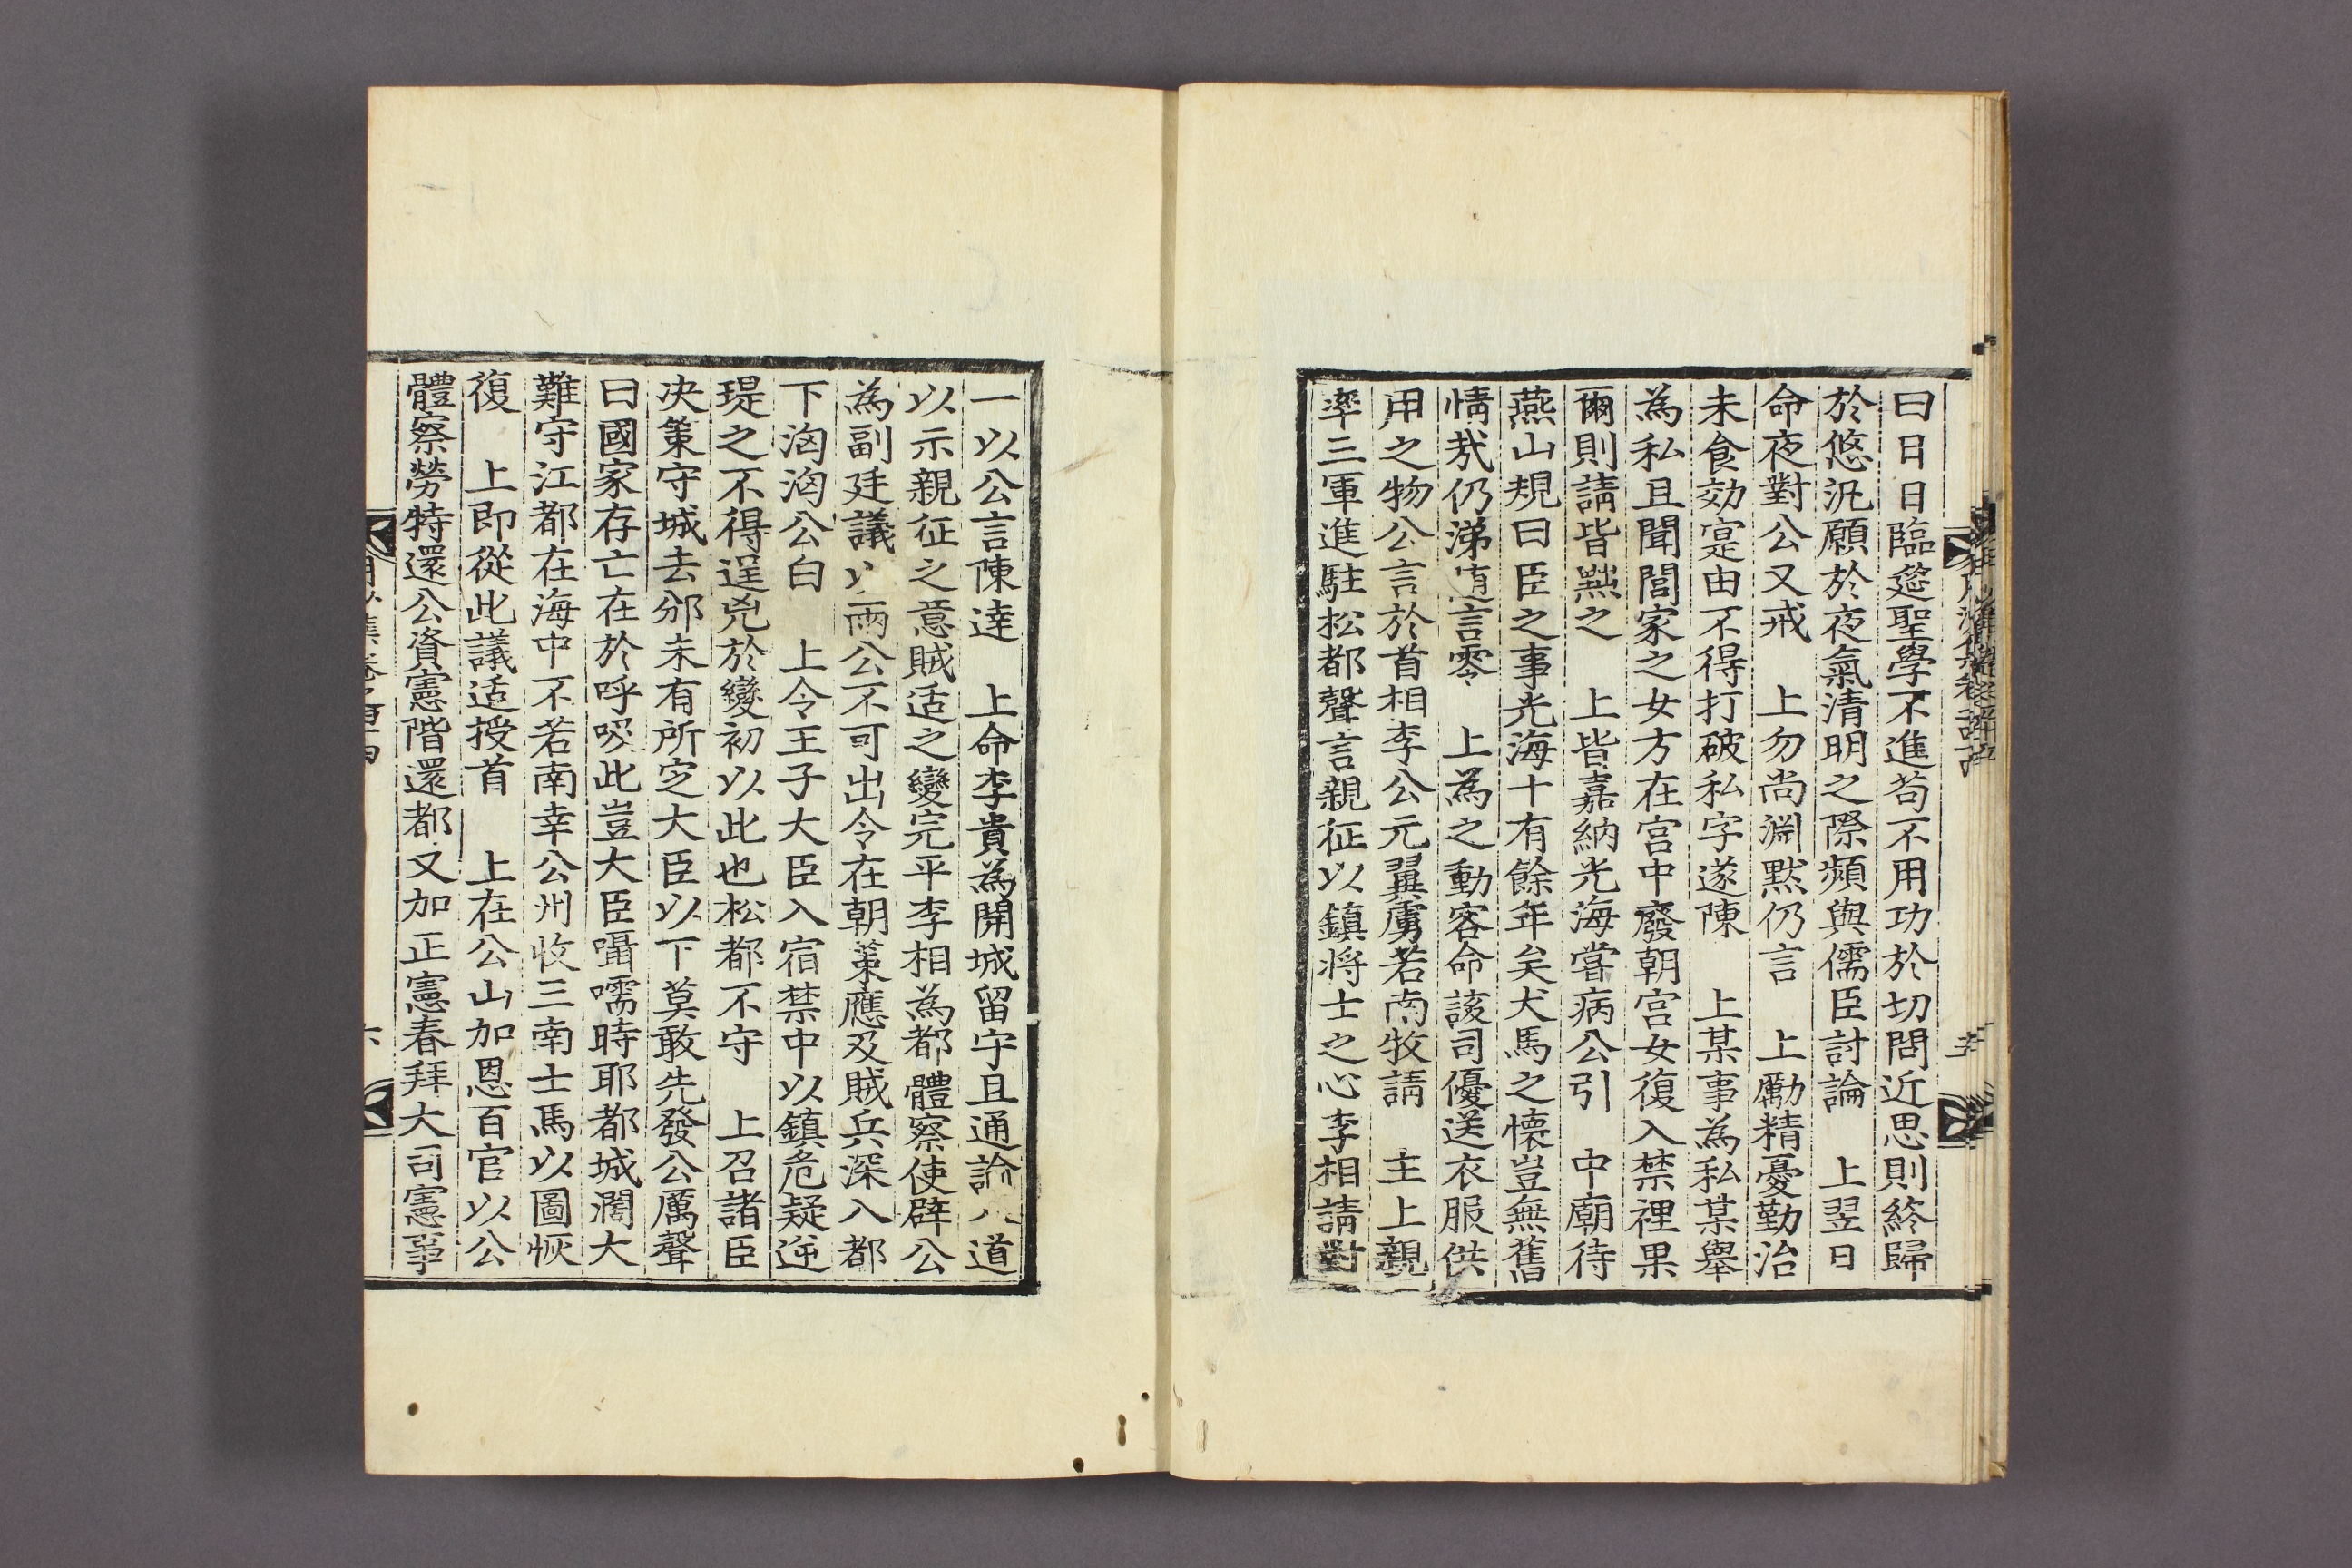 曰日日臨筵聖學不進苟不用功於切問近思則終歸
於悠汎願於夜氣清明之際頻與儒臣討論 上翌日
命夜對公又戒 上勿尚淵默仍言 上勵精憂勤治
未食效寔由不得打破私字遂陳 上某事為私某舉
為私且聞閭家之女方在宮中廢朝宮女復入禁裡果
爾則請皆黜之 上皆嘉納光海嘗病公引 中廟待
燕山規曰臣之事光海十有餘年矣犬馬之懷豈無舊
情哉仍涕隨言零 上為之動容命該司優送衣服供
用之物公言於首相李公元翼虜若南牧請 主上親
率三軍進駐松都聲言親征以鎮將士之心李相請對
一以公言陳達 上命李貴為開城留守且通諭八道
以示親征之意賊适之變完平李相為都體察使辟公
為副廷議以兩公不可出令在朝策應及賊兵深入都
下洶洶公白 上令王子大臣入宿禁中以鎮危疑逆
瑅之不得逞兇於變初以此也松都不守 上召諸臣
決策守城去邠未有所定大臣以下莫敢先發公厲聲
曰國家存亡在於呼吸此豈大臣囁嚅時耶都城闊大
難守江都在海中不若南幸公州收三南士馬以圖恢
復 上即從此議适授首 上在公山加恩百官以公
體察勞特還公資憲階還都又加正憲春拜大司憲事
六